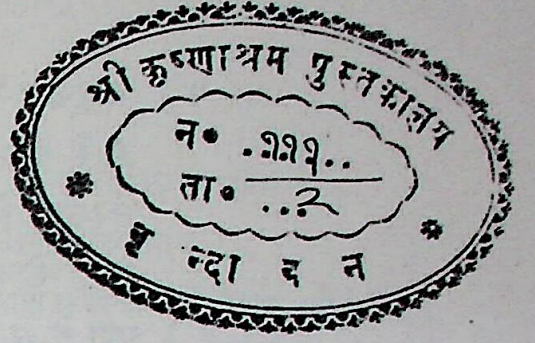 श्री कृष्णाश्रम पुस्तकालय
न० .१११..
ता० ...२
वृन्दावन